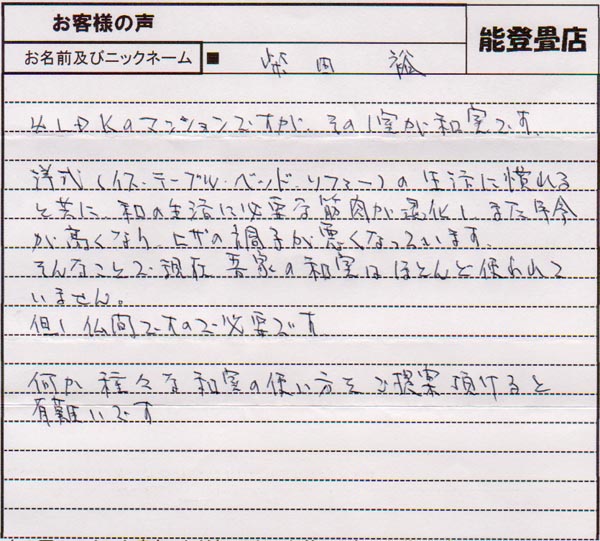 お客様の声
能登畳店
お名前及びニックネーム ■ 柴田 裕
4LDKのマンションですが、その1室が和室です。
洋式(イス・テーブル・ベッド・ソファー)の生活に慣れる
と共に、和の生活に必要な筋肉が退化し、また年令
が高くなり、ヒザの調子が悪くなっています。
そんなことで現在吾家の和室はほとんど使われて
いません。
但し仏間ですので必要です
何か種々な和室の使い方をご提案頂けると
有難いです